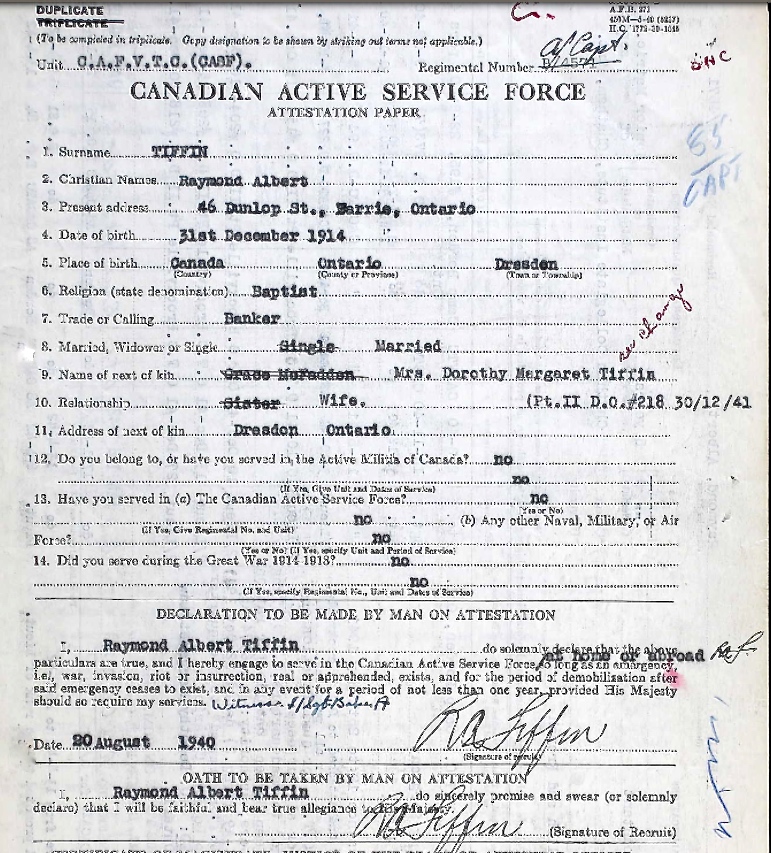 DUPLICATE
TRIPLICATE
A.F.B. 271
450M-8-40 (8227)
H.Q. 1772-39-1048
(To be completed in triplicate. Copy designation to be shown by striking out terms not applicable.)
A/Capt.
Unit C.A.F.V.T.C.(CASF). Regimental Number
CANADIAN ACTIVE SERVICE FORCE
ATTESTATION PAPER
55
CAPT
1. Surname TIFFIN
2. Christian Names Raymond Albert
3. Present address 46 Dunlop St., Barrie, Ontario
4. Date of birth 31st December 1914
5. Place of birth Canada Ontario Dresden
(Country) (County or Province) (Town or Township)
6. Religion (state denomination) Baptist
7. Trade or Calling Banker
8. Married, Widower or Single Single Married
change
9. Name of next of kin Grace McFadden Mrs. Dorothy Margaret Tiffin
10. Relationship Sister Wife. (Pt.II D.O.#218 30/12/41
11. Address of next of kin Dresden Ontario
12. Do you belong to, or have you served in, the Active Militia of Canada? no
no
(If Yes, Give Unit and Dates of Service)
13. Have you served in (a) The Canadian Active Service Force? no
(Yes or No)
no (b) Any other Naval, Military, or Air
(If Yes, Give Regimental No. and Unit)
Force? no
(Yes or No) (If Yes, specify Unit and Period of Service)
14. Did you serve during the Great War 1914-1918? no
no
(If Yes, specify Regimental No., Unit and Dates of Service)
DECLARATION TO BE MADE BY MAN ON ATTESTATION
I, Raymond Albert Tiffin do solemnly declare that the above
at home or abroad
particulars are true, and I hereby engage to serve in the Canadian Active Service Force, so long as an emergency,
i.e., war, invasion, riot or insurrection, real or apprehended, exists, and for the period of demobilisation after
said emergency ceases to exist, and in any event for a period of not less than one year, provided His Majesty
should so require my services. Witness
RA Tiffin
Date 20 August 1940
(Signature of recruit)
OATH TO BE TAKEN BY MAN ON ATTESTATION
I, Raymond Albert Tiffin do sincerely promise and swear (or solemnly
declare) that I will be faithful and bear true allegiance to His Majesty.
RA Tiffin (Signature of Recruit)